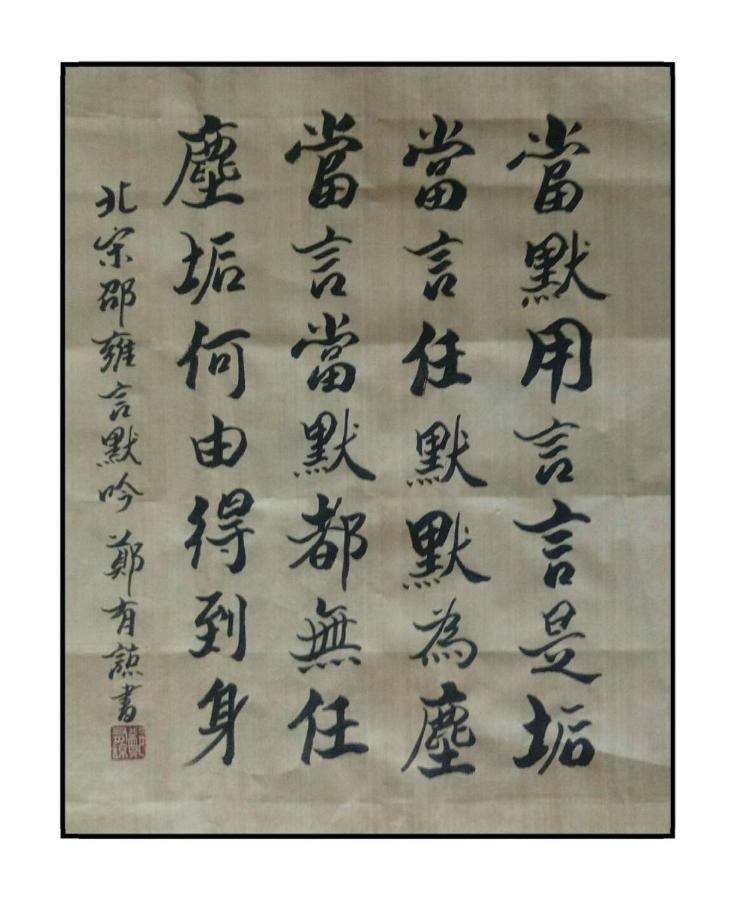 當默用言言是垢
當言任默默為塵
當言當默都無任
塵垢何由得到身
北宋邵雍言默吟 鄭有諒書